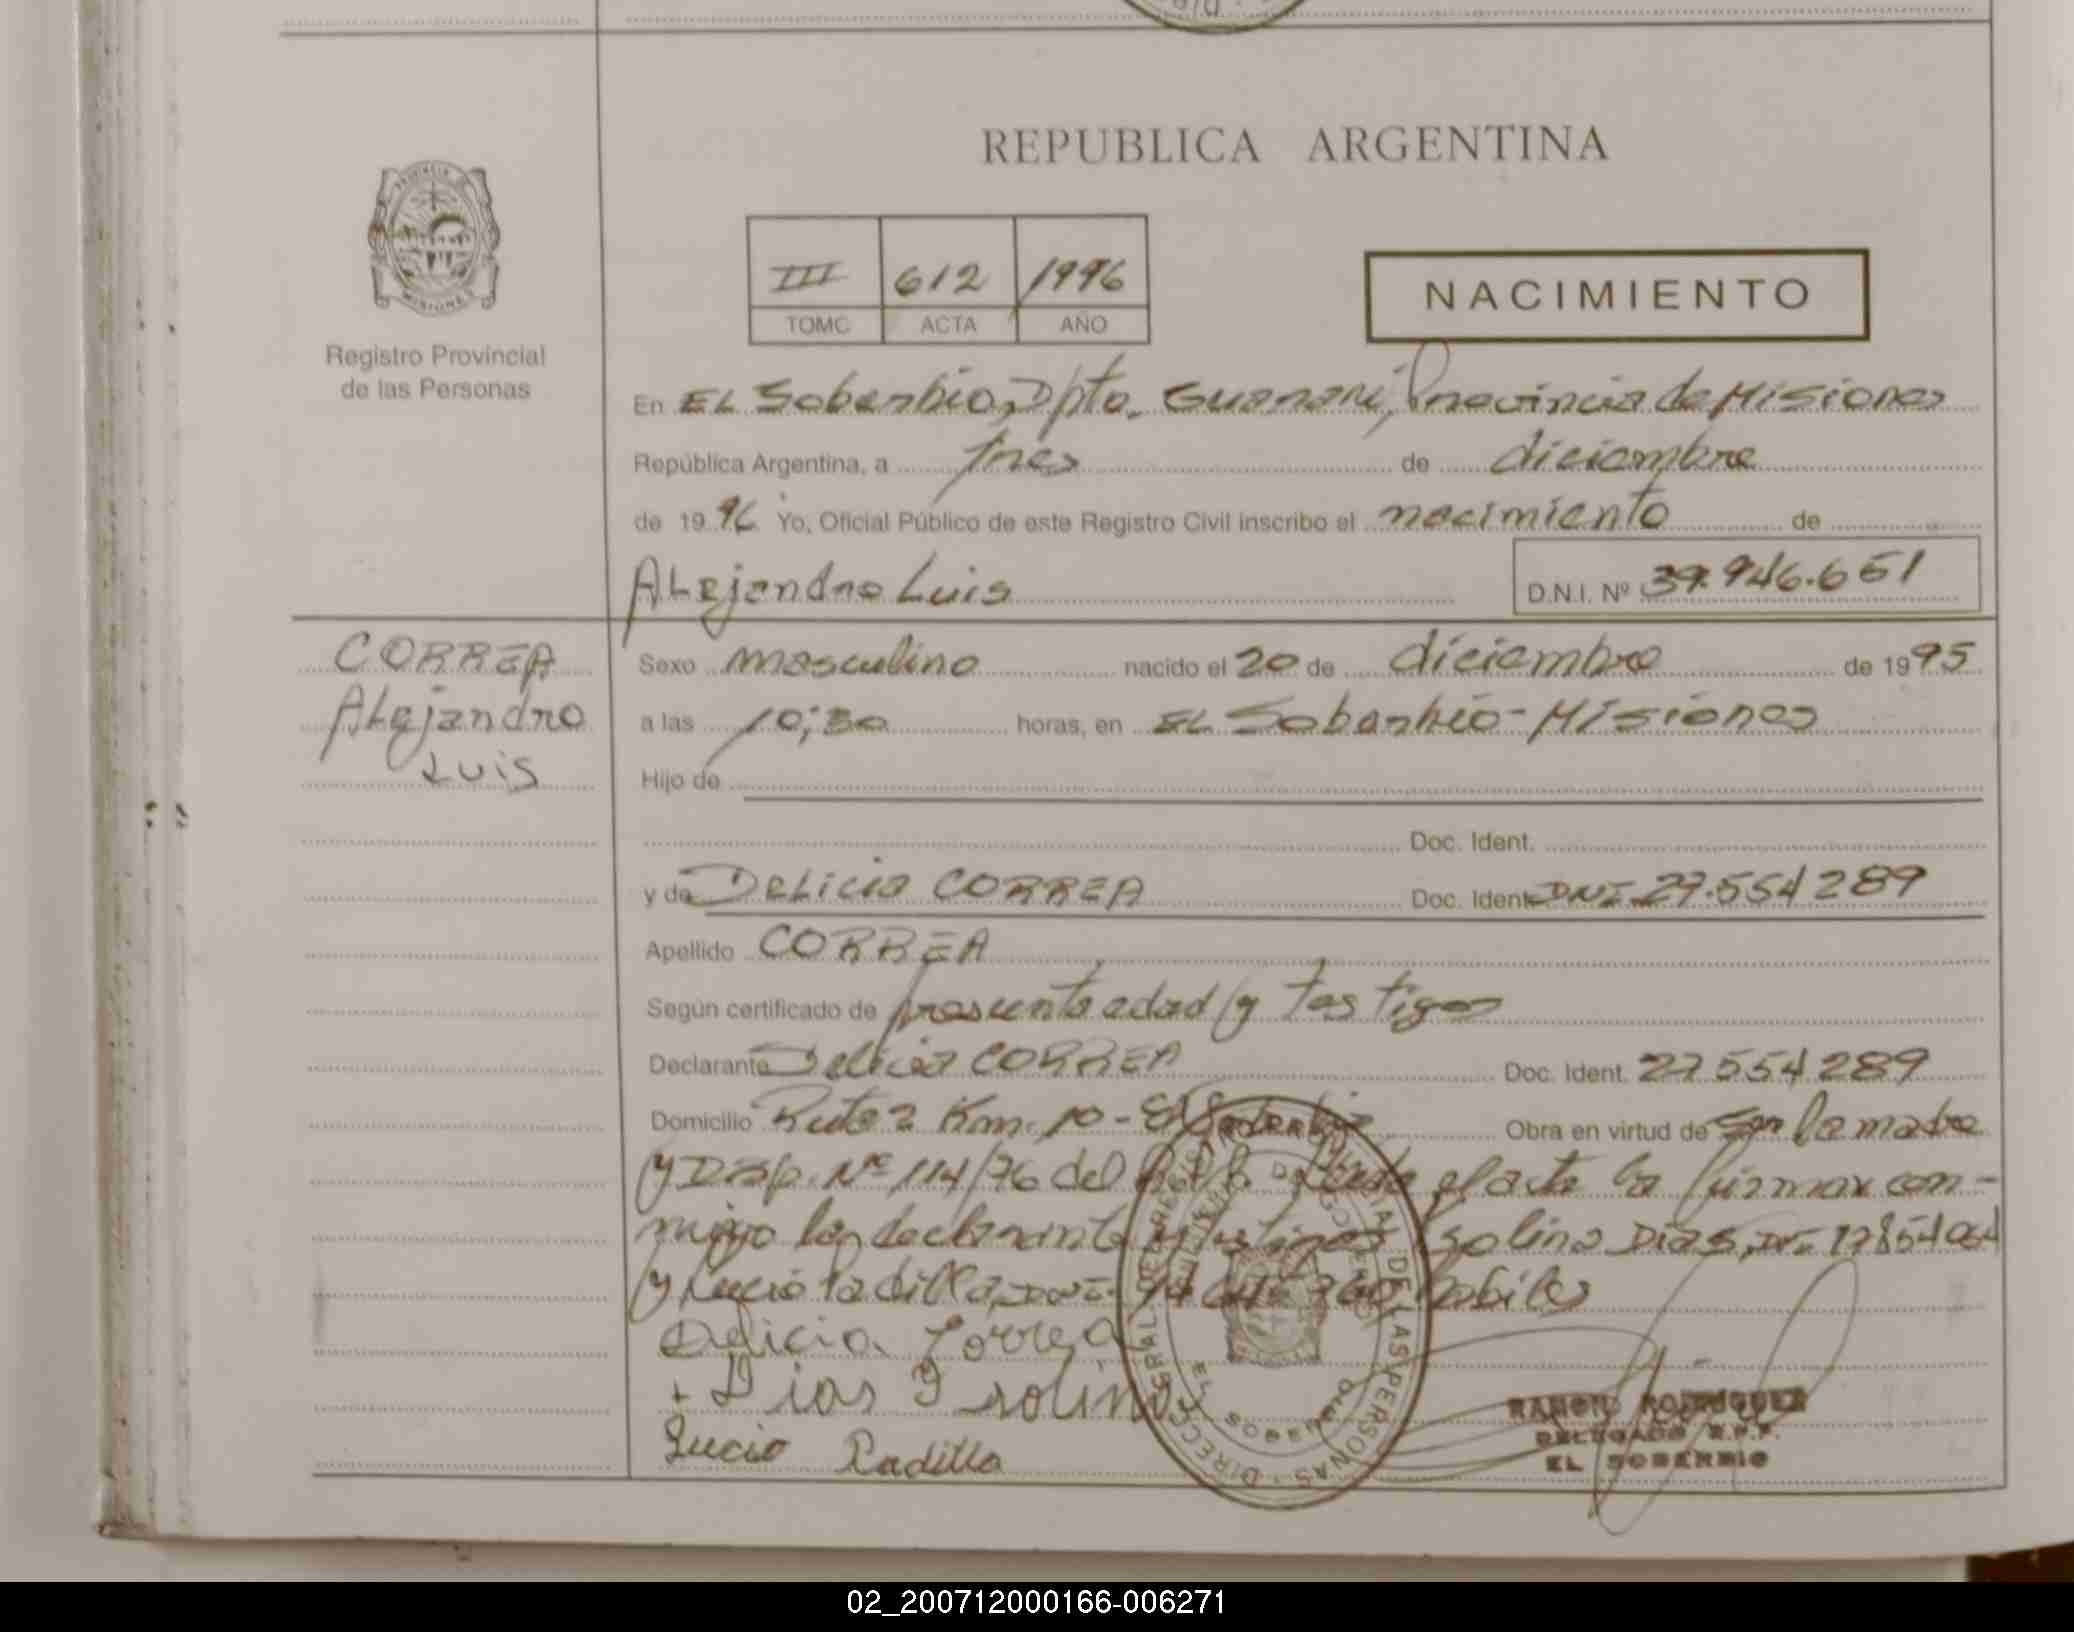 REPUBLICA ARGENTINA
PROVINCIA DE
MISIONES
Registro Provincial
de las Personas
III 612 1996
TOMO ACTA AÑO
NACIMIENTO
En EL Soberbio, Dpto. Guarani, Provincia de Misiones
República Argentina, a tres de diciembre
de 1996 Yo, Oficial Público de este Registro Civil inscribo el nacimiento de
Alejandro Luis
D.N.I. Nº 39.946.651
CORREA
Alejandro
Luis
Sexo masculino nacido el 20 de diciembre de 1995
a las 10:30 horas, en EL Soberbio - Misiones
Hijo de
Doc. Ident.
y de Delicia CORREA Doc. Ident. DNI. 27.554 289
Apellido CORREA
Según certificado de presunta edad y testigos
Declarante Delicia CORREA Doc. Ident. 27 554 289
Domicilio Ruta 2 Km. 10 - El Soberbio Obra en virtud de Ser la madre
y Disp. Nº 114/76 del R.P.P. Leida el acta la firman con-
migo la declarante y testigos Isolina Dias, DNI 17854064
y Lucio Padilla, DNI. habiles
Delicia Correa
+ Dias Isolina
Lucio Padilla
DIRECCION GENERAL DE REGISTRO PROVINCIAL DE LAS PERSONAS
EL SOBERBIO
RAMON RODRIGUEZ
DELEGADO R.P.P.
EL SOBERBIO
02_200712000166-006271